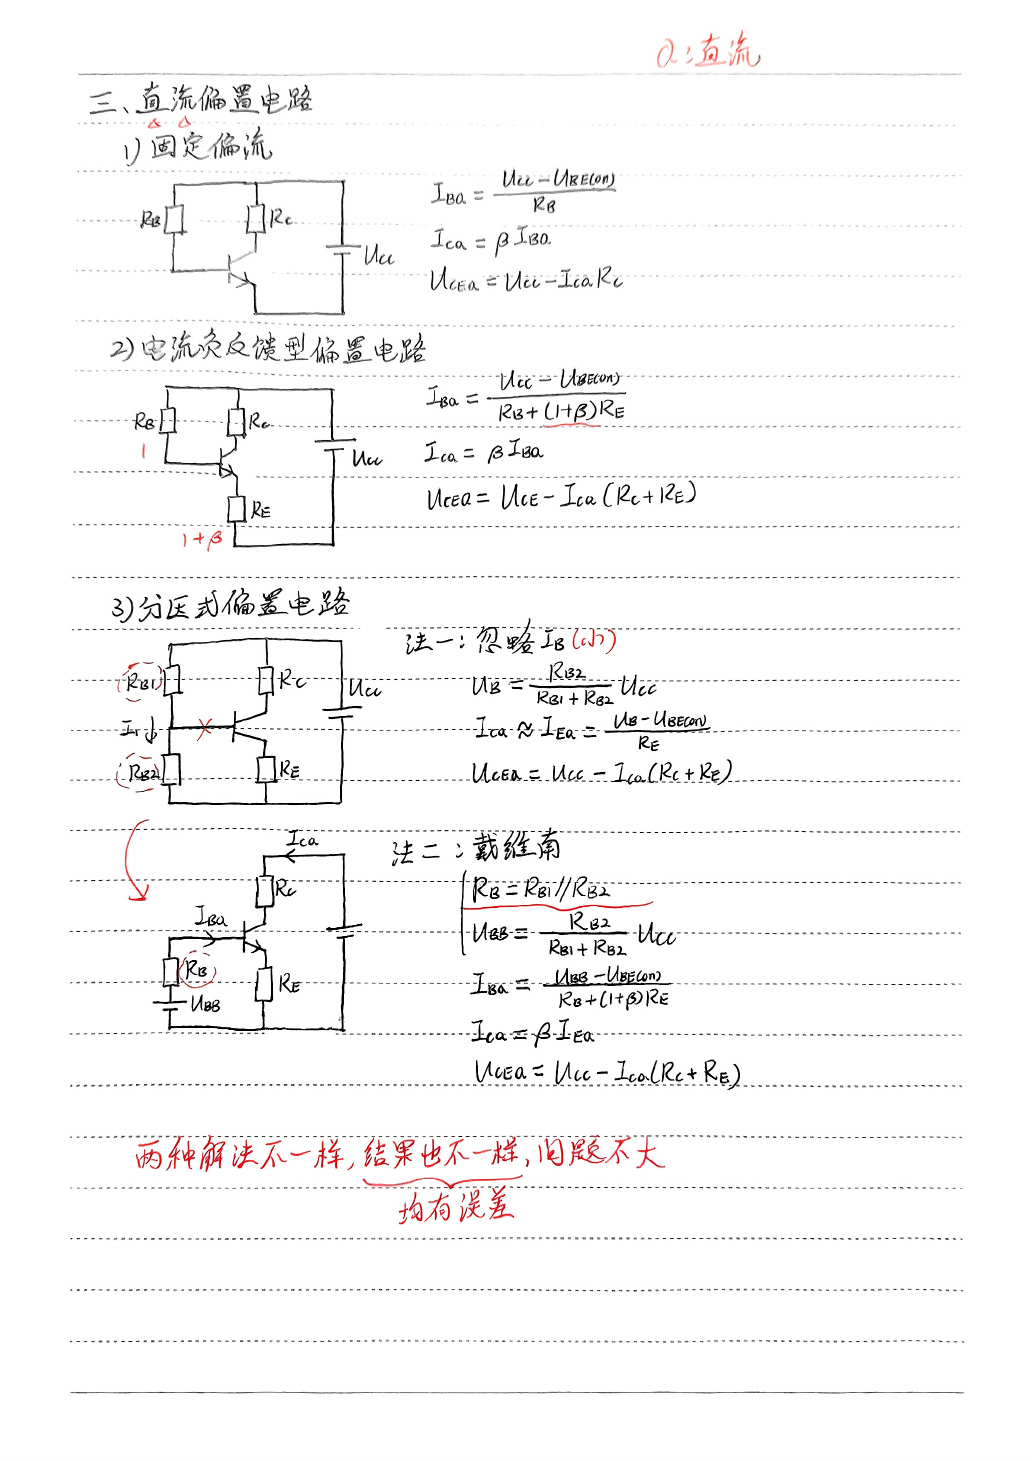 Q:直流
三、直流偏置电路
1) 固定偏流
RB
RC
UCC
IBQ = (UCC - UBE(on)) / RB
ICQ = β IBQ
UCEQ = UCC - ICQ RC
2) 电流负反馈型偏置电路
RB
RC
1
UCC
RE
1+β
IBQ = (UCC - UBE(on)) / (RB + (1+β)RE)
ICQ = β IBQ
UCEQ = UCE - ICQ (RC + RE)
3) 分压式偏置电路
RB1
RC
UCC
I1
RB2
RE
法一:忽略 IB (小)
UB = RB2 / (RB1 + RB2) UCC
ICQ ≈ IEQ = (UB - UBE(on)) / RE
UCEQ = UCC - ICQ(RC + RE)
ICQ
RC
IBQ
RB
RE
UBB
法二:戴维南
RB = RB1 // RB2
UBB = RB2 / (RB1 + RB2) UCC
IBQ = (UBB - UBE(on)) / (RB + (1+β)RE)
ICQ = β IEQ
UCEQ = UCC - ICQ(RC + RE)
两种解法不一样,结果也不一样,问题不大
均有误差